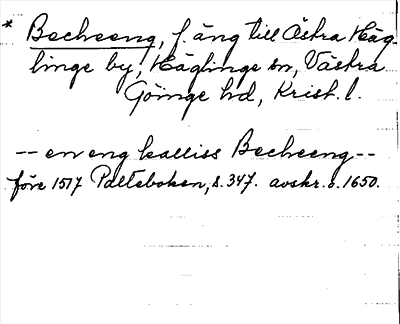 * Becheeng, f. äng till Östra Häg-
linge by, Häglinge sn, Västra
Göinge hd, Krist. l.
-- en eng kalliss Becheeng --
före 1517 Palteboken, s. 347. avskr. o. 1650.